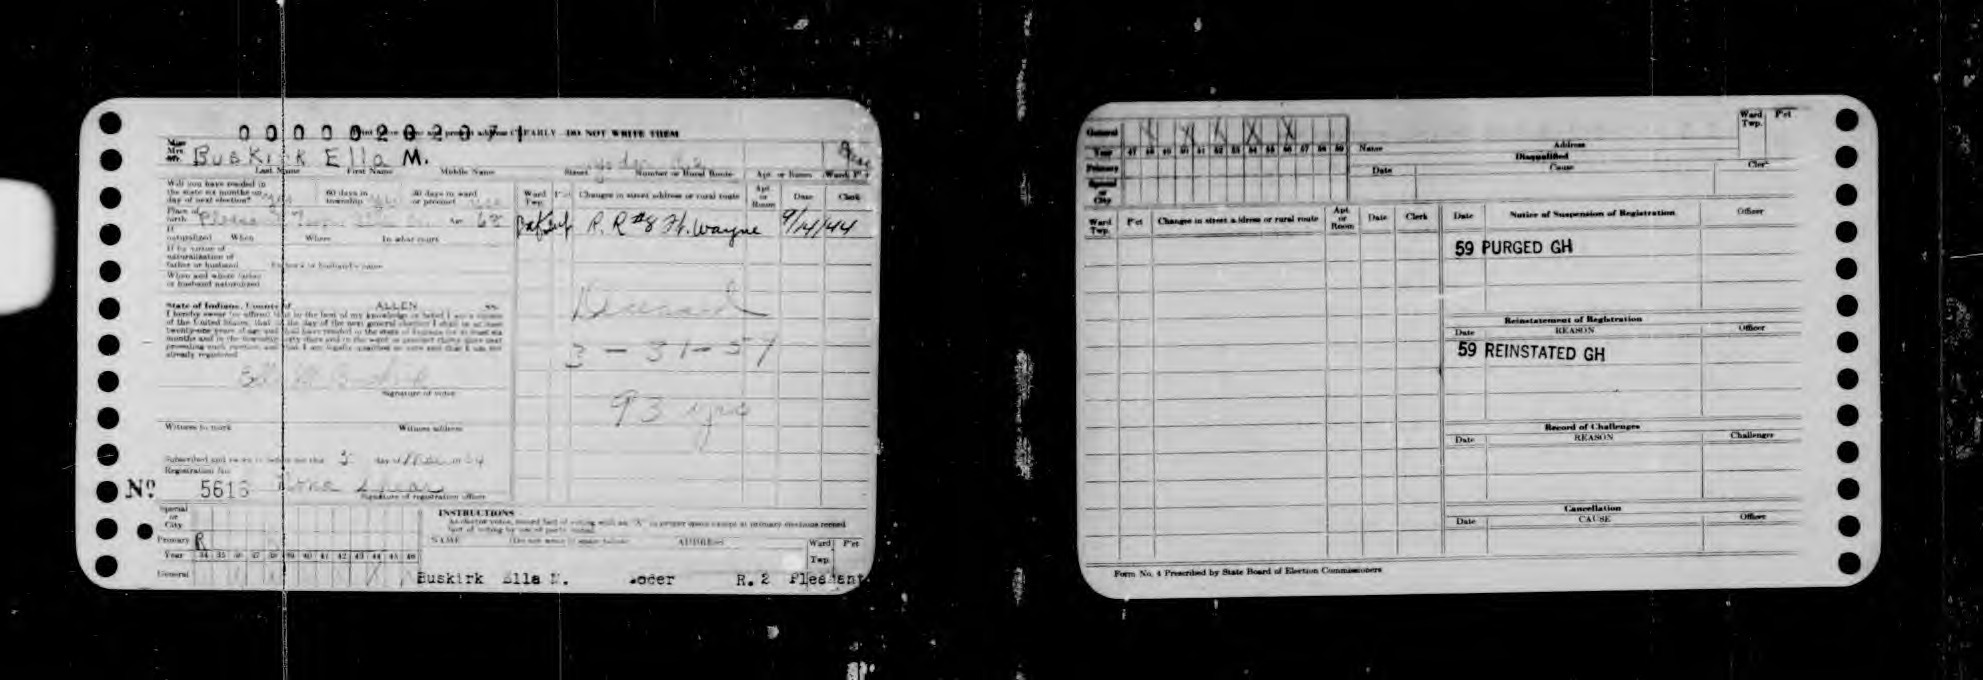 0000020207
CLEARLY DO NOT WRITE THEM
Miss
Mrs.
Mr. Buskirk Ella M.
Last Name First Name Middle Name Street Number or Rural Route Apt. or Room Ward P'ct
Will you have resided in
the state six months on
day of next election? yes
60 days in
township yes
30 days in ward
or precinct yes
Place of
birth Age 68
If
naturalized When Where In what court
If by virtue of
naturalization of
father or husband Father's or husband's name
When and where father
or husband naturalized
State of Indiana, County of ALLEN ss.
I hereby swear (or affirm) that to the best of my knowledge or belief I am a citizen
of the United States, that on the day of the next general election I shall be at least
twenty-one years of age and shall have resided in the state of Indiana for at least six
months and in the township sixty days and in the ward or precinct thirty days next
preceding such election, and that I am legally qualified to vote and that I am not
already registered
Ella M. Buskirk
Signature of voter
Witness to mark Witness address
Subscribed and sworn to before me this 5 day of
Registration No.
No 5616
Signature of registration officer
Ward
Twp. P'ct Changes in street address or rural route Apt.
or
Room Date Clerk
R. R #8 Ft. Wayne 9/14/44
Deceased
3-31-57
93 yrs
Special
or
City
Primary R
Year 34 35 36 37 38 39 40 41 42 43 44 45 46
General X
INSTRUCTIONS
As elector votes, record fact of voting with an "X" in proper space except at primary elections record
fact of voting by use of party initial
NAME (Do not write in space below) ADDRESS Ward
Twp. P'ct
Buskirk Ella M. R. 2 Pleasant
General X X X X X
Year 47 48 49 50 51 52 53 54 55 56 57 58 59
Primary
Special
or
City
Name Address Ward
Twp. P'ct
Disqualified
Date Cause Clerk
Ward
Twp. P'ct Changes in street address or rural route Apt.
or
Room Date Clerk
Date Notice of Suspension of Registration Officer
59 PURGED GH
Reinstatement of Registration
Date REASON Officer
59 REINSTATED GH
Record of Challenges
Date REASON Challenger
Cancellation
Date CAUSE Officer
Form No. 4 Prescribed by State Board of Election Commissioners